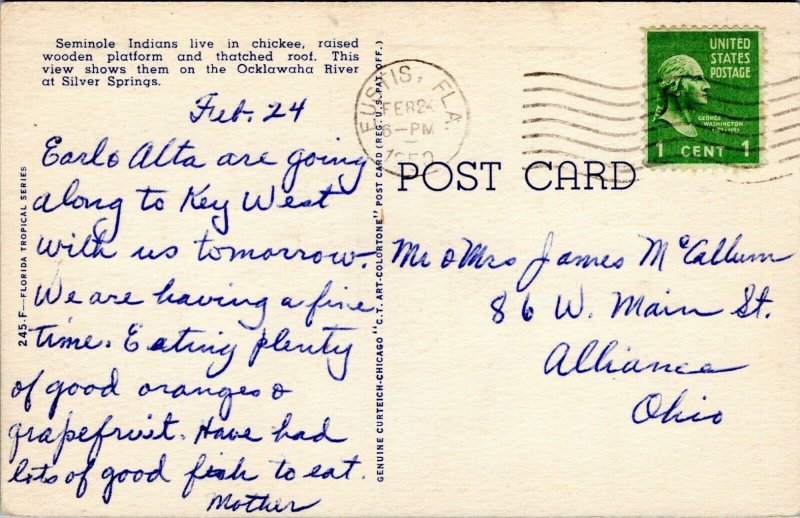 Seminole Indians live in chickee, raised
wooden platform and thatched roof. This
view shows them on the Ocklawaha River
at Silver Springs.
Feb. 24
Earl & Alta are going
along to Key West
with us tomorrow.
We are having a fine
time. Eating plenty
of good oranges &
grapefruit. Have had
lots of good fish to eat.
Mother
245-F—FLORIDA TROPICAL SERIES
GENUINE CURTEICH-CHICAGO "C.T. ART-COLORTONE" POST CARD (REG. U.S. PAT. OFF.)
EUSTIS, FLA.
FEB 24
6-PM
UNITED
STATES
POSTAGE
GEORGE
WASHINGTON
1789-1797
1 CENT 1
POST CARD
Mr & Mrs James McCallum
86 W. Main St.
Alliance
Ohio